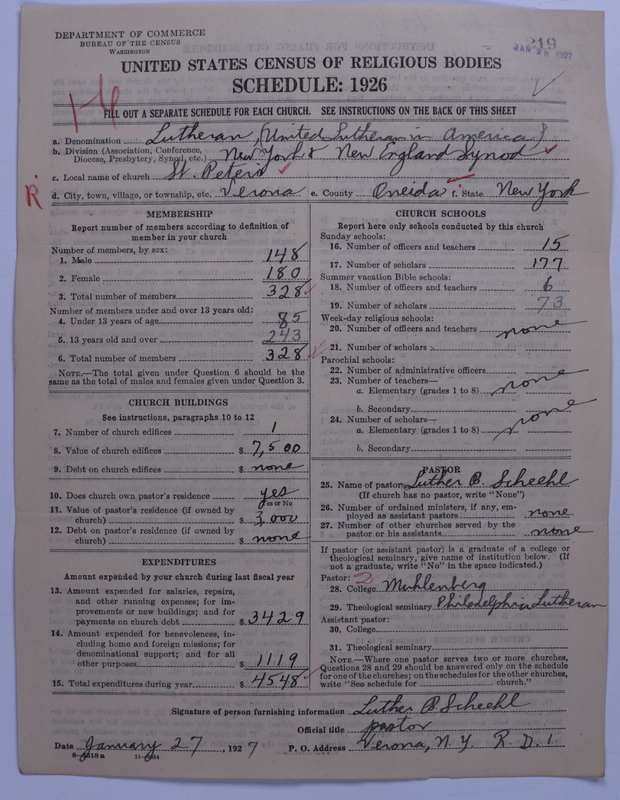 DEPARTMENT OF COMMERCE
BUREAU OF THE CENSUS
WASHINGTON
219
JAN 28 1927
UNITED STATES CENSUS OF RELIGIOUS BODIES
SCHEDULE: 1926
1-6
FILL OUT A SEPARATE SCHEDULE FOR EACH CHURCH. SEE INSTRUCTIONS ON THE BACK OF THIS SHEET
a. Denomination Lutheran (United Lutheran in America)
b. Division (Association, Conference, Diocese, Presbytery, Synod, etc.) New York & New England Synod
c. Local name of church St. Peters
R
d. City, town, village, or township, etc. Verona e. County Oneida f. State New York
MEMBERSHIP
Report number of members according to definition of
member in your church
Number of members, by sex:
1. Male 148
2. Female 180
3. Total number of members 328
Number of members under and over 13 years old:
4. Under 13 years of age 85
5. 13 years old and over 243
6. Total number of members 328
NOTE.—The total given under Question 6 should be the
same as the total of males and females given under Question 3.
CHURCH BUILDINGS
See instructions, paragraphs 10 to 12
7. Number of church edifices 1
8. Value of church edifices $ 7,500
9. Debt on church edifices $ none
10. Does church own pastor's residence yes
Yes or No
11. Value of pastor's residence (if owned by
church) $ 3,000
12. Debt on pastor's residence (if owned by
church) $ none
EXPENDITURES
Amount expended by your church during last fiscal year
13. Amount expended for salaries, repairs,
and other running expenses; for im-
provements or new buildings; and for
payments on church debt $ 3429
14. Amount expended for benevolences, in-
cluding home and foreign missions; for
denominational support; and for all
other purposes $ 1119
15. Total expenditures during year $ 4548
CHURCH SCHOOLS
Report here only schools conducted by this church
Sunday schools:
16. Number of officers and teachers 15
17. Number of scholars 177
Summer vacation Bible schools:
18. Number of officers and teachers 6
19. Number of scholars 73
Week-day religious schools:
20. Number of officers and teachers none
21. Number of scholars
Parochial schools:
22. Number of administrative officers
23. Number of teachers—
a. Elementary (grades 1 to 8) none
b. Secondary
24. Number of scholars—
a. Elementary (grades 1 to 8) none
b. Secondary
PASTOR
25. Name of pastor Luther B. Scheehl
(If church has no pastor, write "None")
26. Number of ordained ministers, if any, em-
ployed as assistant pastors none
27. Number of other churches served by the
pastor or his assistants none
If pastor (or assistant pastor) is a graduate of a college or
theological seminary, give name of institution below. (If
not a graduate, write "No" in the space indicated.)
Pastor: 2
28. College Muhlenberg
29. Theological seminary Philadelphia Lutheran
Assistant pastor:
30. College
31. Theological seminary
NOTE.—Where one pastor serves two or more churches,
Questions 28 and 29 should be answered only on the schedule
for one of the churches; on the schedules for the other churches,
write "See schedule for church."
Signature of person furnishing information Luther B Scheehl
Official title pastor
Date January 27, 1927 P. O. Address Verona, N. Y. R. D. 1